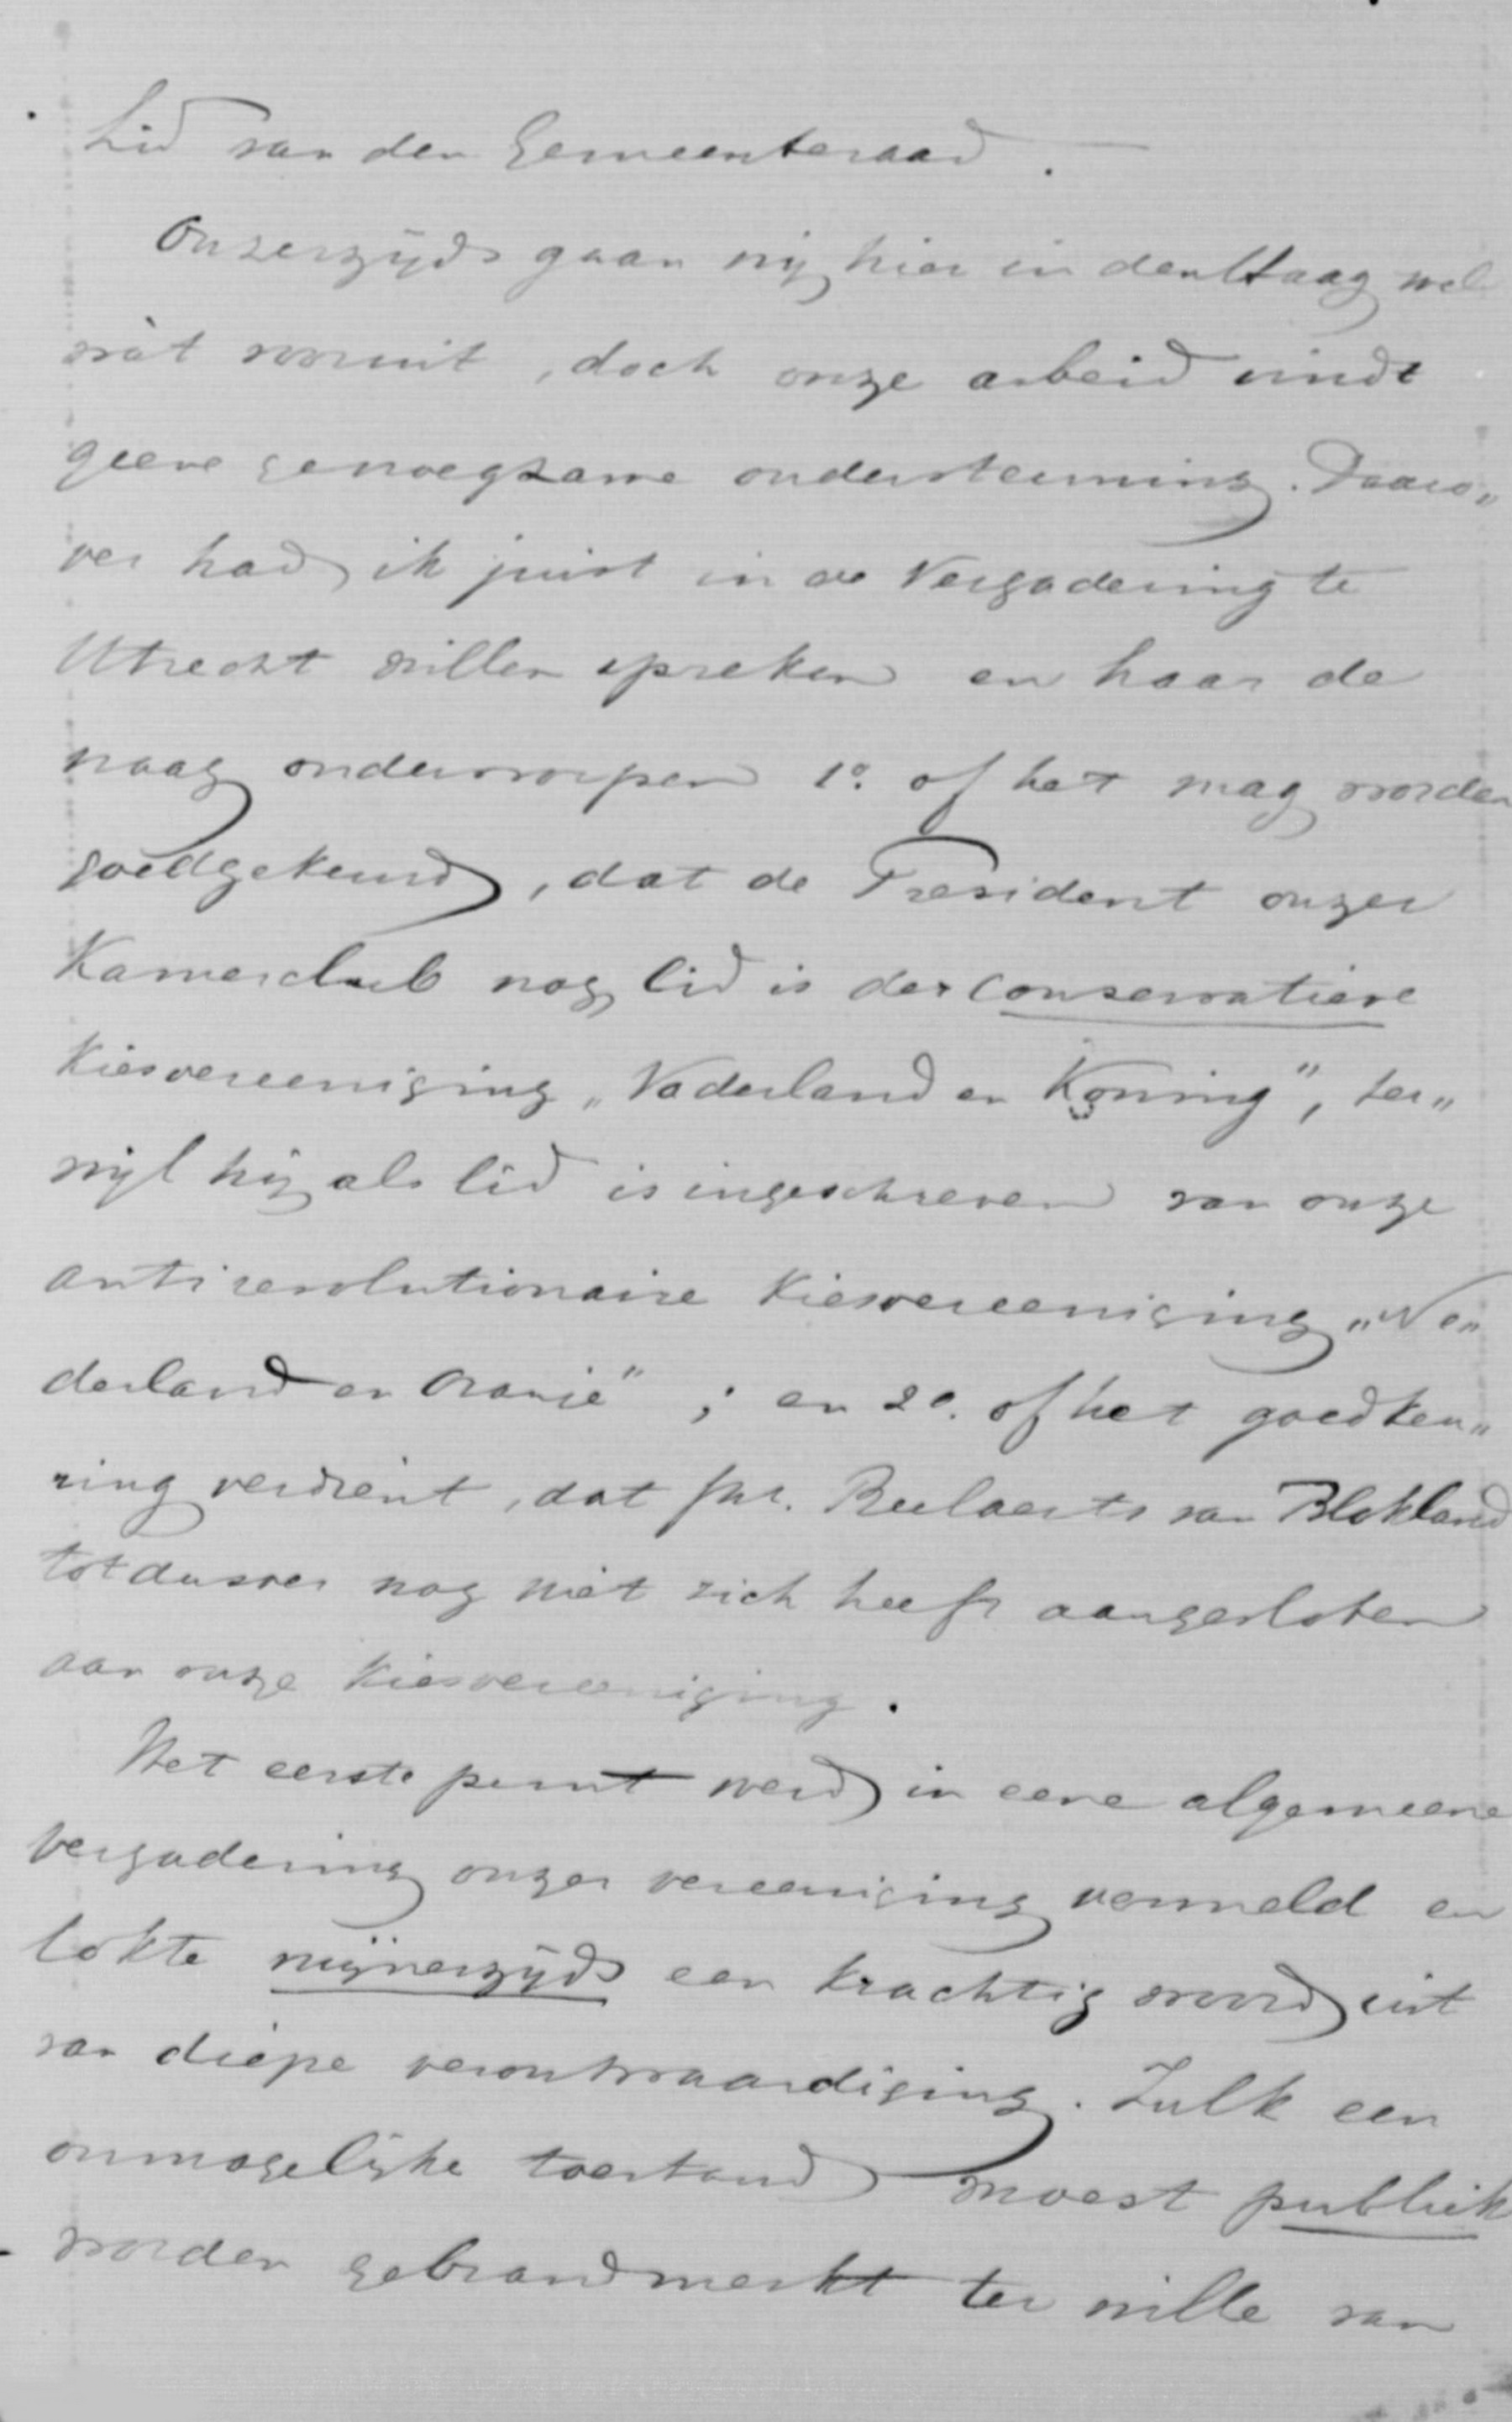 Lid van den Gemeenteraad. —
Onzerzijds gaan wij hier in den Haag wel
wàt vooruit, doch onze arbeid vindt
geene genoegzame ondersteuning. Daaro„
ver had ik juist in de Vergadering te
Utrecht willen spreken en haar de
vraag onderworpen 1º. of het mag worden
goedgekeurd, dat de President onzer
Kamerclub nog lid is der conservatieve
Kiesvereeniging „Vaderland en Koning", ter„
wijl hij als lid is ingeschreven van onze
antirevolutionaire Kiesvereeniging „Ne„
derland en Oranje"; en 2º. of het goedkeu„
ring verdient, dat Jhr. Beelaerts van Blokland
tot dusver nog niet zich heeft aangesloten
aan onze Kiesvereeniging.
Het eerste punt werd in eene algemeene
vergadering onzer vereeniging vermeld en
lokte mijnerzijds een krachtig woord uit
van diepe verontwaardiging. Zulk een
onmogelijke toestand moest publiek
worden gebrandmerkt ter wille van